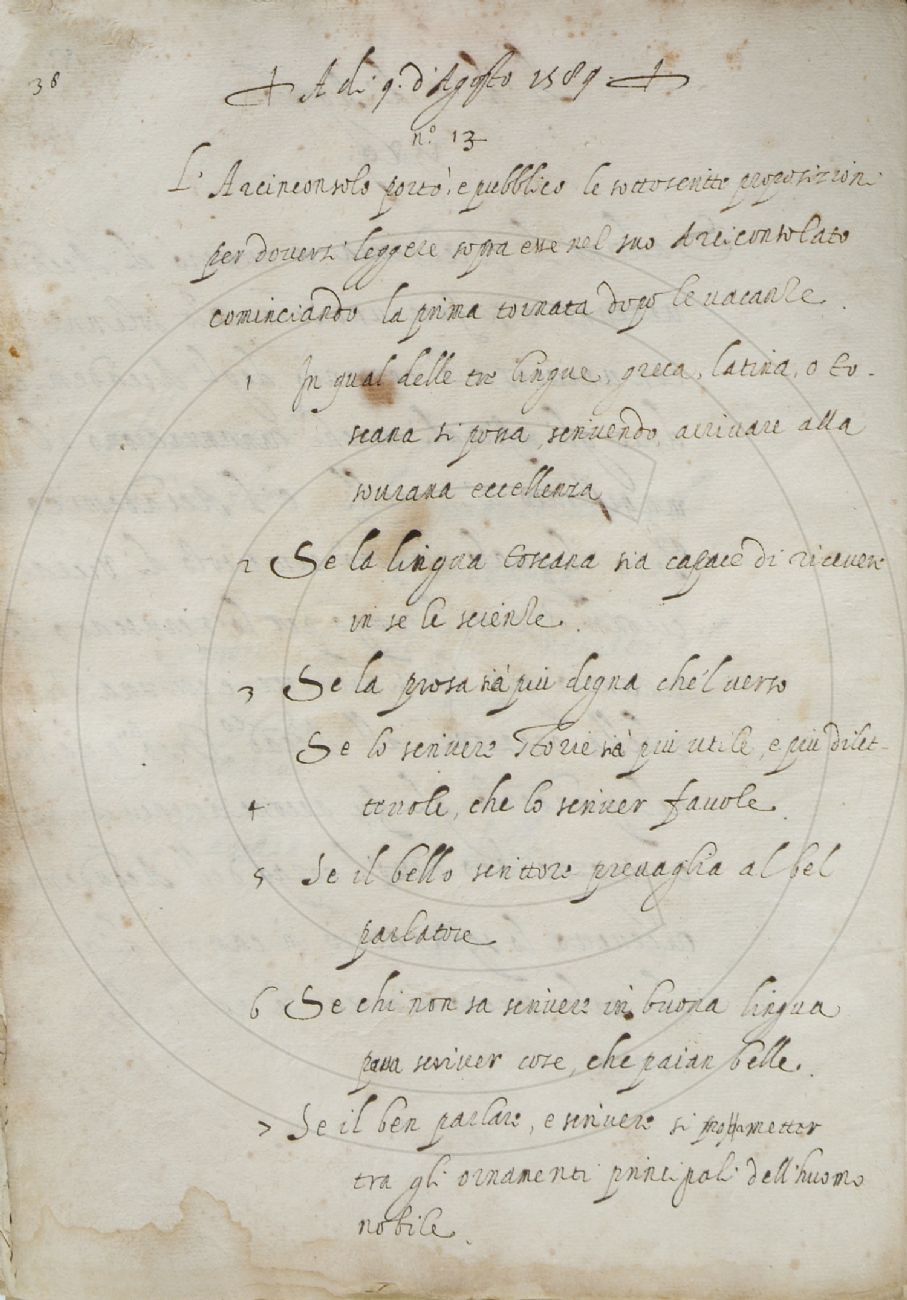 38
A di 9. d'Agosto 1589.
n.º 13
L' Arciconsolo portò, e pubblicò le sottoscritte proposizioni
per doversi leggere sopra esse nel suo Arciconsolato
cominciando la prima tornata dopo le vacanze.
1 In qual delle tre lingue, greca, latina, o to-
scana si possa, scrivendo, arrivare alla
sovrana eccellenza
2 Se la lingua toscana sia capace di ricevere
in se le scienze.
3 Se la prosa sia più degna che 'l verso
Se lo scrivere Storie sia più utile, e più dilet-
4 tevole, che lo scriver favole.
5 Se il bello scrittore prevaglia al bel
parlatore
6 Se chi non sa scrivere in buona lingua
possa scriver cose, che paian belle.
7 Se il ben parlare, e scrivere si possa metter
tra gli ornamenti principali dell'huomo
nobile.